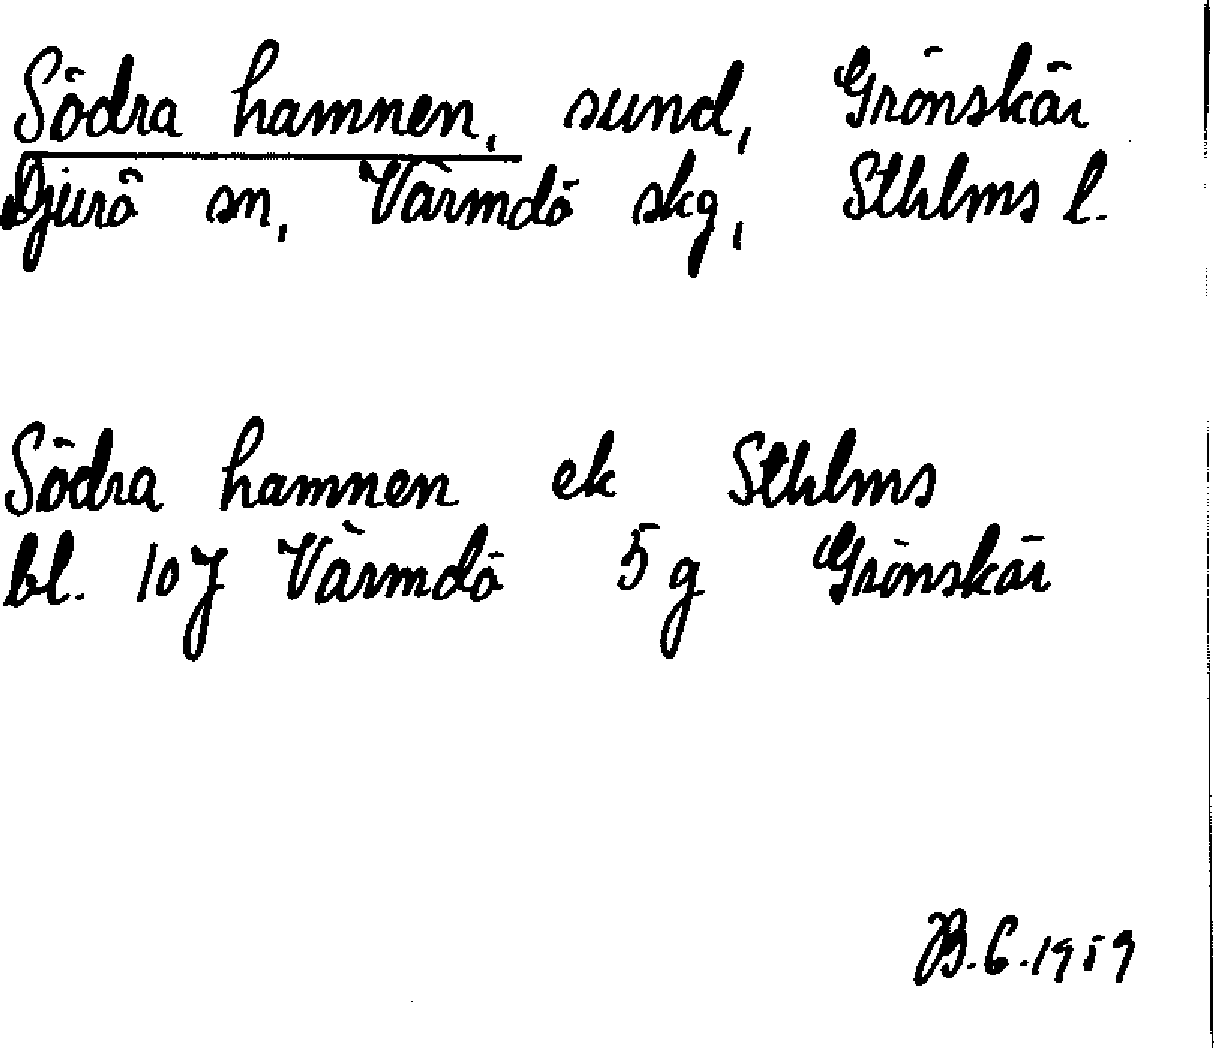 Södra hamnen, sund, Grönskär
Djurö sn, Värmdö skg, Sthlms l.
Södra hamnen ek Sthlms
bl. 10J Värmdö 5g Grönskär
B.C. 1959